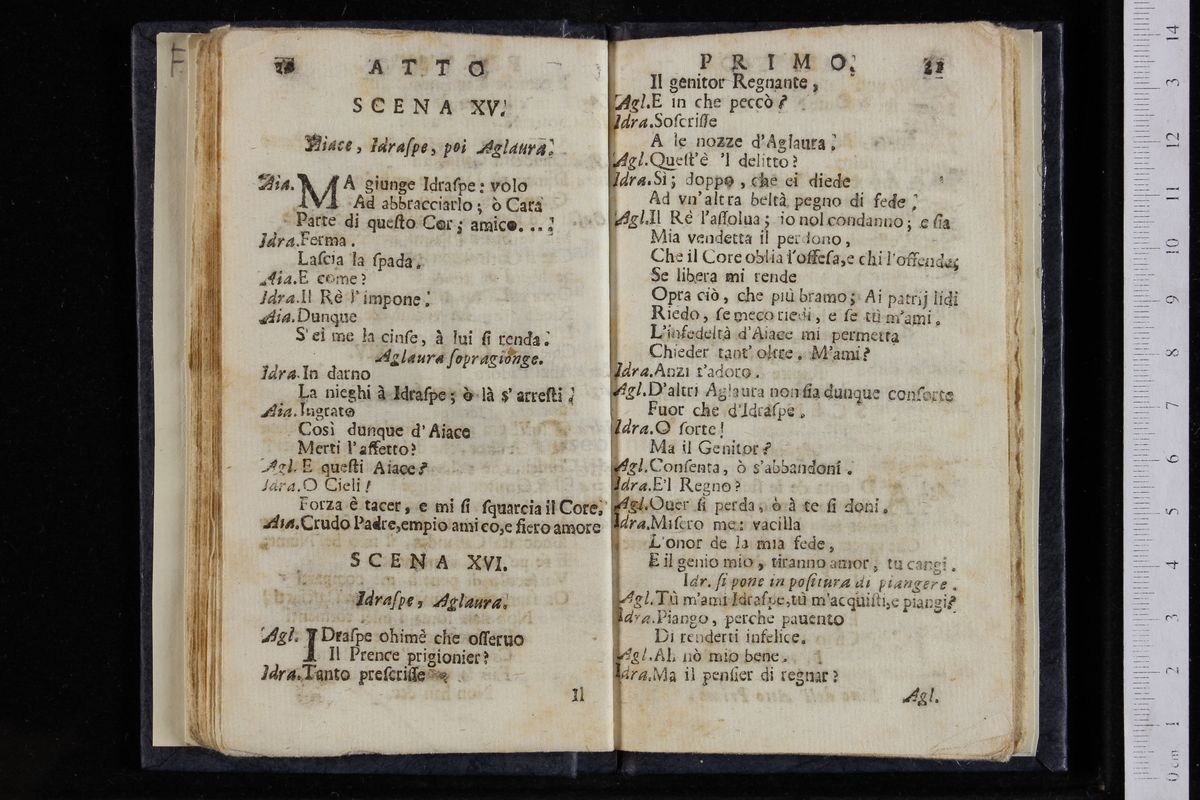 ATTO
SCENA XV.
Aiace, Idraſpe, poi Aglaura.
Aia. MA giunge Idraſpe: volo
Ad abbracciarlo; ò Cara
Parte di queſto Cor; amico...
Idra. Ferma.
Laſcia la ſpada.
Aia. E come?
Idra. Il Rè l'impone.
Aia. Dunque
S'ei me la cinſe, à lui ſi renda.
Aglaura ſopragionge.
Idra. In darno
La nieghi à Idraſpe; ò là s'arreſti.
Aia. Ingrato
Così dunque d'Aiace
Merti l'affetto?
Agl. E queſti Aiace?
Idra. O Cieli!
Forza è tacer, e mi ſi ſquarcia il Core.
Aia. Crudo Padre, empio amico, e fiero amore
SCENA XVI.
Idraſpe, Aglaura.
Agl. IDraſpe ohimè che oſſeruo
Il Prence prigionier?
Idra. Tanto preſcriſſe
Il
PRIMO. 21
Il genitor Regnante,
Agl. E in che peccò?
Idra. Soſcriſſe
A le nozze d'Aglaura.
Agl. Queſt'è 'l delitto?
Idra. Sì; doppo, che ei diede
Ad vn'altra beltà pegno di fede.
Agl. Il Rè l'aſſolua; io nol condanno; e ſia
Mia vendetta il perdono,
Che il Core oblia l'offeſa, e chi l'offende;
Se libera mi rende
Opra ciò, che più bramo; Ai patrij lidi
Riedo, ſe meco riedi, e ſe tù m'ami.
L'infedeltà d'Aiace mi permetta
Chieder tant'oltre. M'ami?
Idra. Anzi t'adoro.
Agl. D'altri Aglaura non ſia dunque conſorte
Fuor che d'Idraſpe.
Idra. O ſorte!
Ma il Genitor?
Agl. Conſenta, ò s'abbandoni.
Idra. E'l Regno?
Agl. Ouer ſi perda, ò à te ſi doni.
Idra. Miſero me: vacilla
L'onor de la mia fede,
E il genio mio, tiranno amor, tu cangi.
Idr. ſi pone in poſitura di piangere.
Agl. Tù m'ami Idraſpe, tù m'acquiſti, e piangi?
Idra. Piango, perche pauento
Di renderti infelice.
Agl. Ah nò mio bene.
Idra. Ma il penſier di regnar?
Agl.